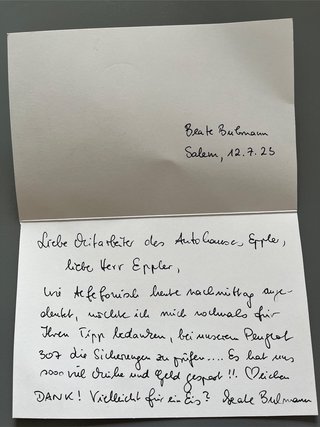 Beate Bulmann
Salem, 12.7.23
Liebe Mitarbeiter des Autohauses Eppler,
liebe Herr Eppler,
wie telefonisch heute nachmittag ange-
deutet, möchte ich mich nochmals für
Ihren Tipp bedanken, bei unserem Peugeot
307 die Sicherungen zu prüfen.... Es hat uns
sooo viel Mühe und Geld gespart!!! ♡lichen
DANK! Vielleicht für ein Eis? Beate Bulmann